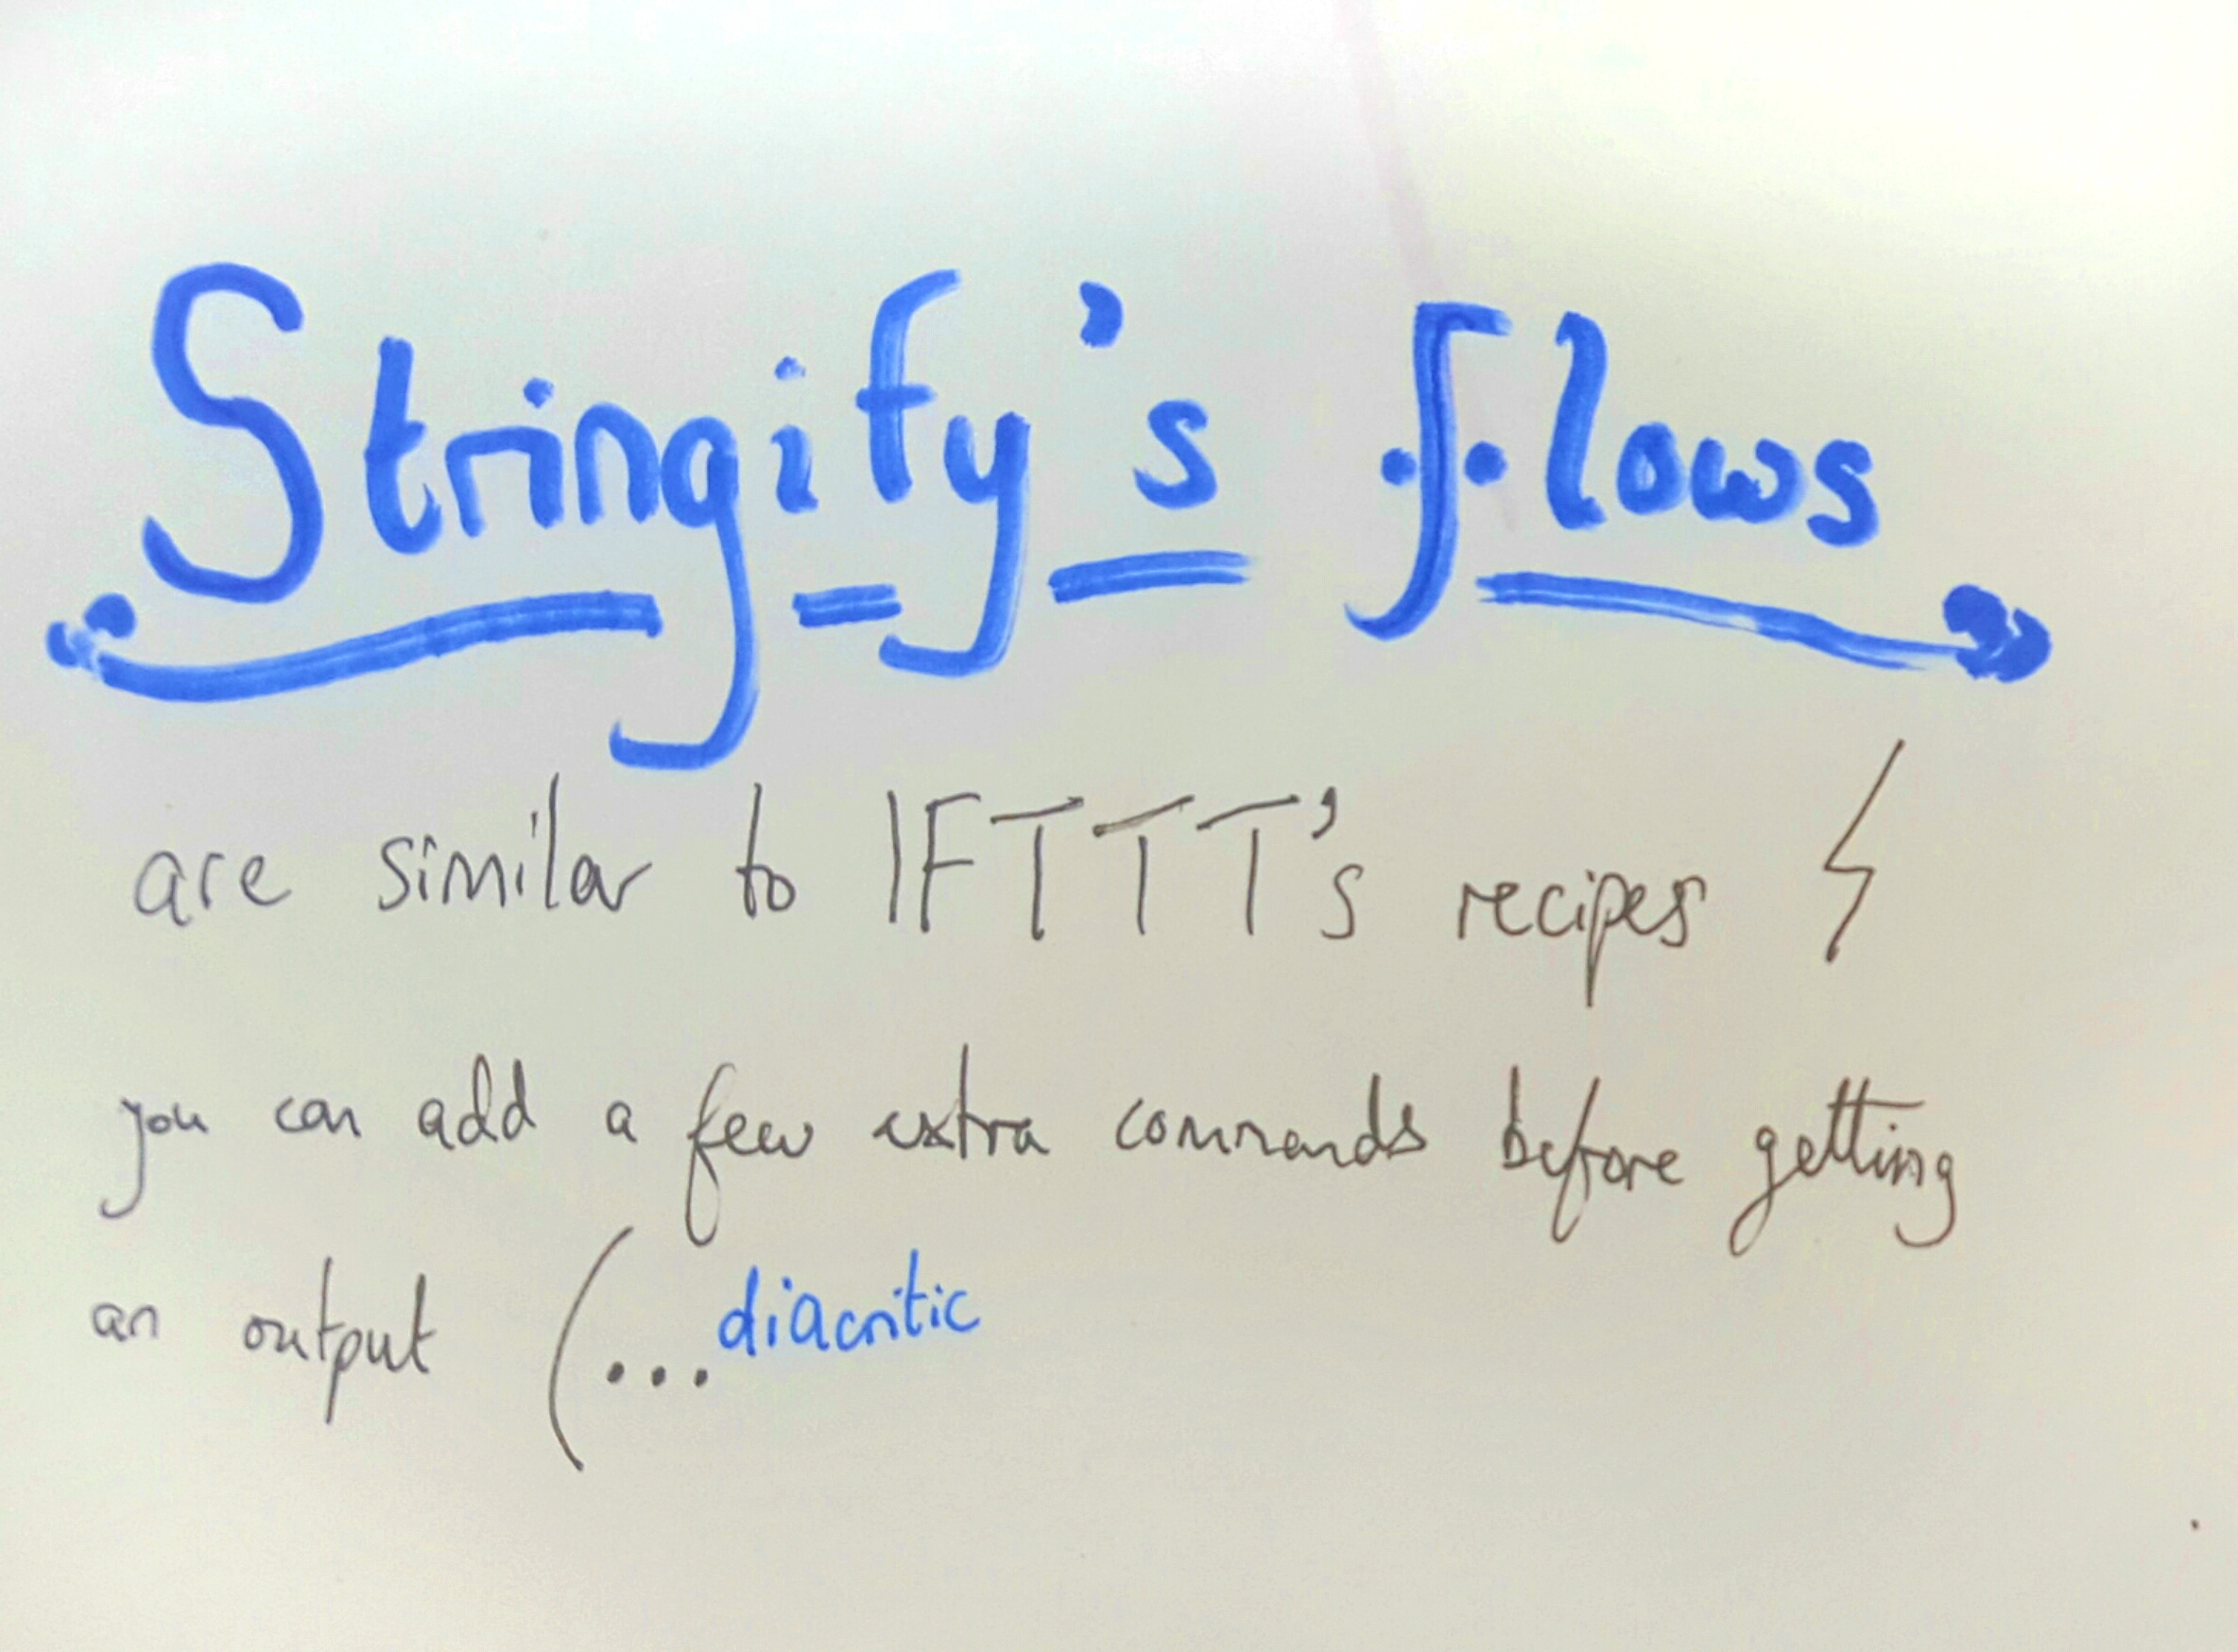 Stringify's flows
are similar to IFTTT's recipes
you can add a few extra commands before getting
an output (...diacritic